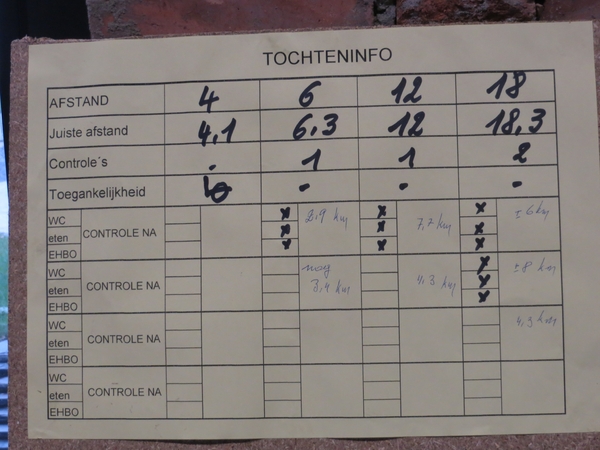 TOCHTENINFO
AFSTAND 4 6 12 18
Juiste afstand 4,1 6,3 12 18,3
Controle´s . 1 1 2
Toegankelijkheid - - -
WC x x x
eten CONTROLE NA x 2,9 km x 7,7 km x ±6 km
EHBO x x x
WC nog x
eten CONTROLE NA 3,4 km 4,3 km x ±8 km
EHBO x
WC
eten CONTROLE NA 4,3 km
EHBO
WC
eten CONTROLE NA
EHBO